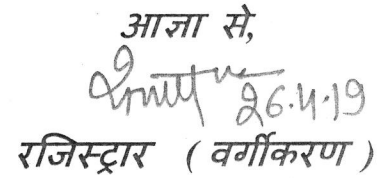 आज्ञा से,
26.4.19
रजिस्ट्रार ( वर्गीकरण )